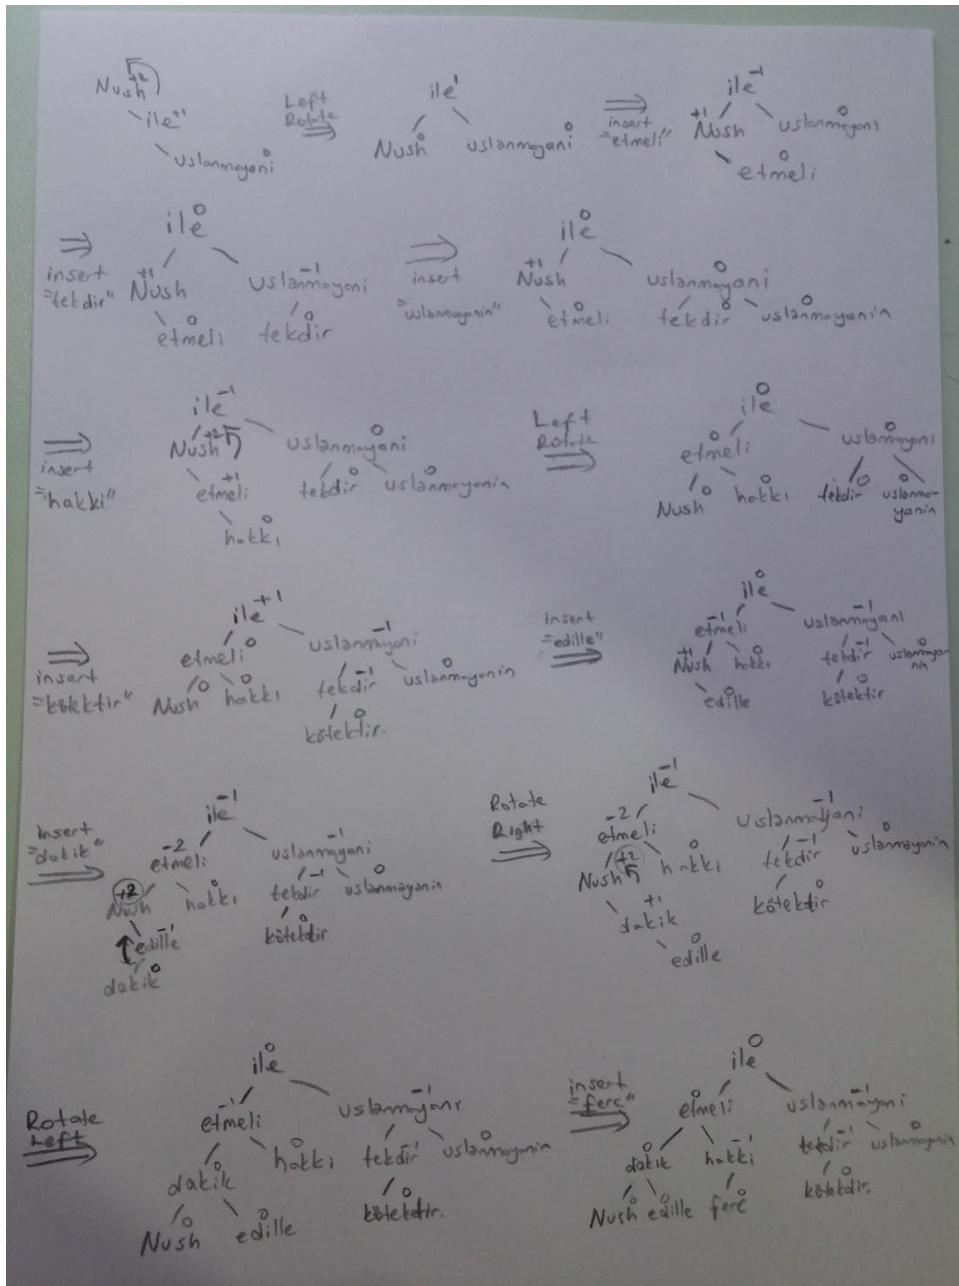 +2
Nush
ile +1
uslanmayani 0
Left
Rotate
ile 1
Nush 0 uslanmayani 0
insert
"etmeli"
ile -1
+1 Nush uslanmayani 0
etmeli 0
insert
"tekdir"
ile 0
+1 Nush uslanmayani -1
etmeli 0 tekdir 0
insert
"uslanmayanin"
ile 0
+1 Nush uslanmayani 0
etmeli 0 tekdir 0 uslanmayanin 0
insert
"hakki"
ile -1
Nush +2 uslanmayani 0
etmeli +1 tekdir 0 uslanmayanin 0
hakkı 0
Left
Rotate
ile 0
etmeli 0 uslanmayani 0
Nush 0 hakkı 0 tekdir 0 uslanma- 0
yanin
insert
"kötektir"
ile +1
etmeli 0 uslanmayani -1
Nush 0 hakkı 0 tekdir -1 uslanmayanin 0
kötektir. 0
insert
"edille"
ile 0
etmeli -1 uslanmayani -1
+1 Nush hakkı 0 tekdir -1 uslanmaya 0
nin
edille 0 kötektir 0
insert
"dakik"
ile -1
etmeli -2 uslanmayani -1
+2 Nush hakkı 0 tekdir -1 uslanmayanin 0
edille -1 kötektdir 0
dakik 0
Rotate
Right
ile -1
etmeli -2 uslanmayani -1
Nush +2 hakkı 0 tekdir -1 uslanmayanin 0
dakik +1 kötektdir 0
edille 0
Rotate
Left
ile 0
etmeli -1 uslanmayani -1
dakik 0 hakkı 0 tekdir -1 uslanmayanin 0
Nush 0 edille 0 kötektdir. 0
insert
"ferc"
ile 0
etmeli 0 uslanmayani -1
dakik 0 hakkı -1 tekdir -1 uslanmayanin 0
Nush 0 edille 0 ferc 0 kötektdir. 0